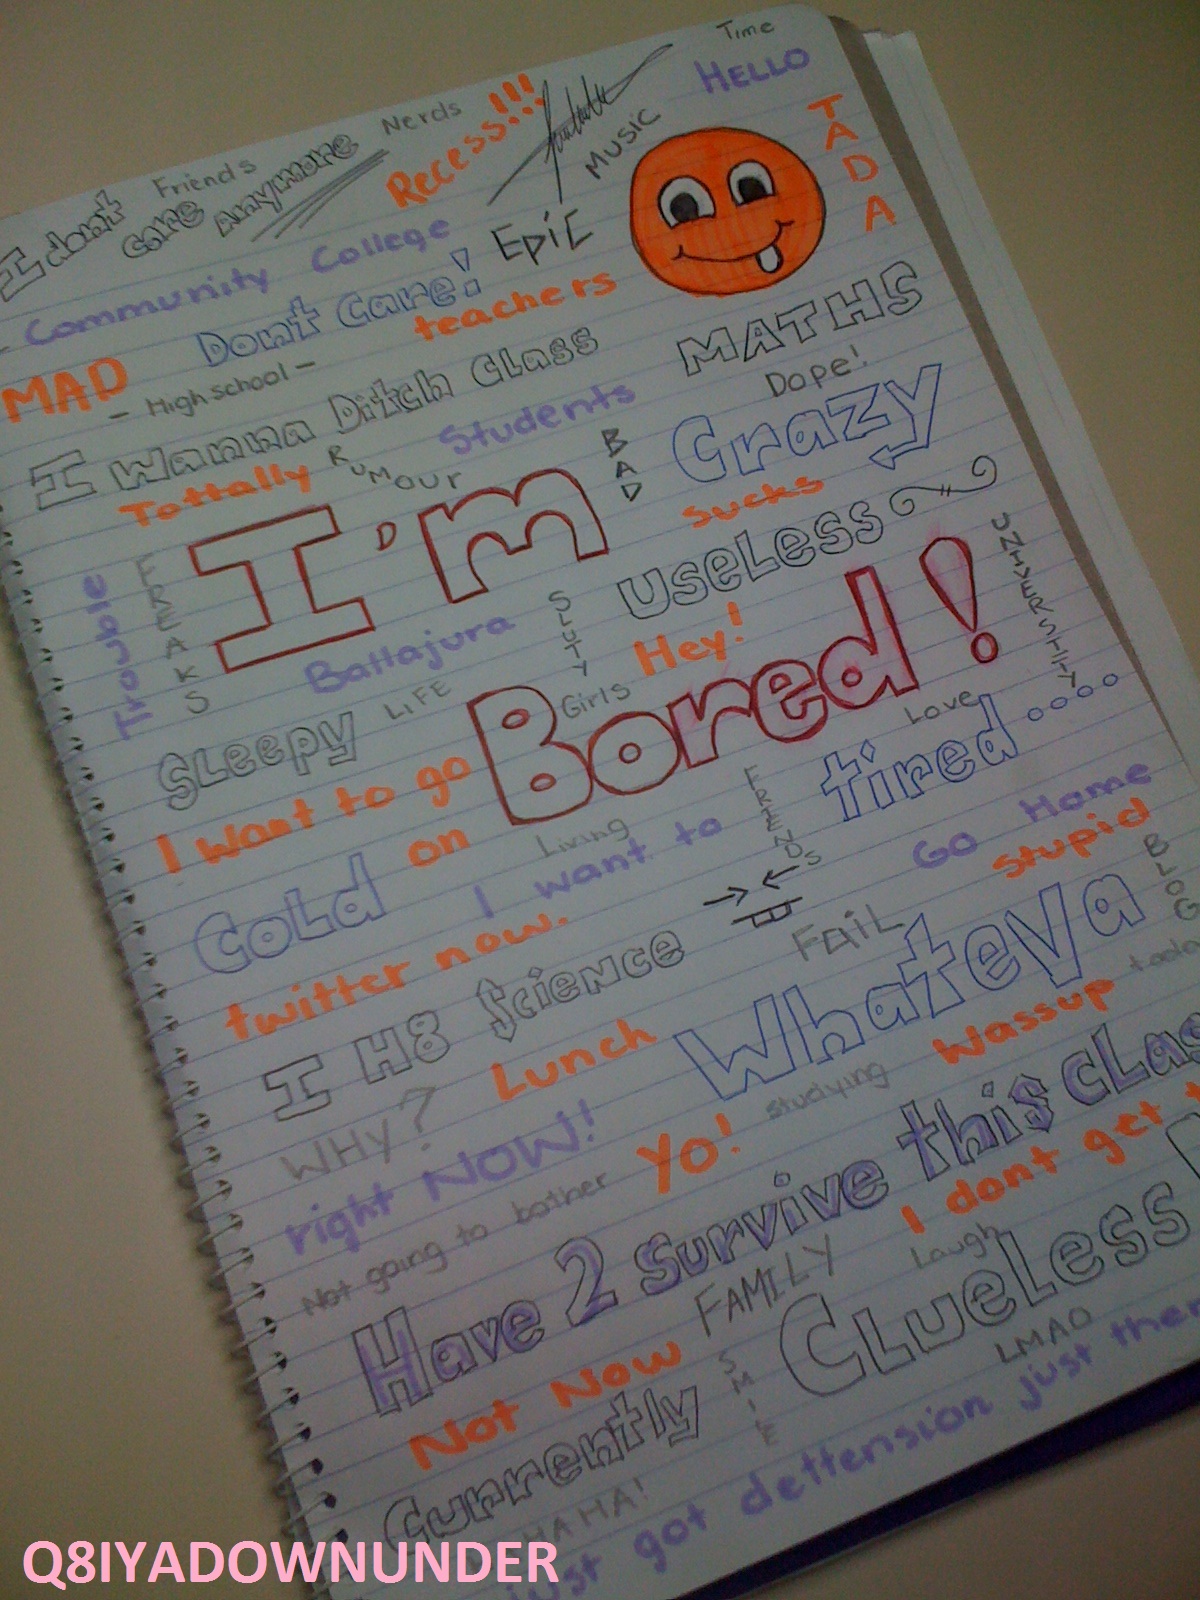 Time
HELLO
Nerds
Recess!!!
MUSIC
TADA
Friends
I dont care anymore
Community College
EPiC
Dont Care!
teachers
MATHS
MAD
- High school -
Dope!
I wanna Ditch Class
Students
Crazy
Tottally
RUMOUR
BAD
sucks
I'm
USELESS
UNIVERSITY
Trouble
FREAKS
Ballajura
SLUTY
Hey!
Girls
Bored!
LIFE
Love
SLEEPY
tired....
I want to go
FRIENDS
on
Living
I want to
Go Home
CoLd
stupid
BLOG
twitter now.
FAiL
Whateva
I H8 Science
Wassup
WHY?
Lunch
studying
right NOW!
Yo!
Not going to bother
Have 2 survive this cLas
I dont get t
FAMILY
Laugh
CLUELESS
Not Now
SMILE
LMAO
Currently
HAHA!
just got dettension just then
Q8IYADOWNUNDER